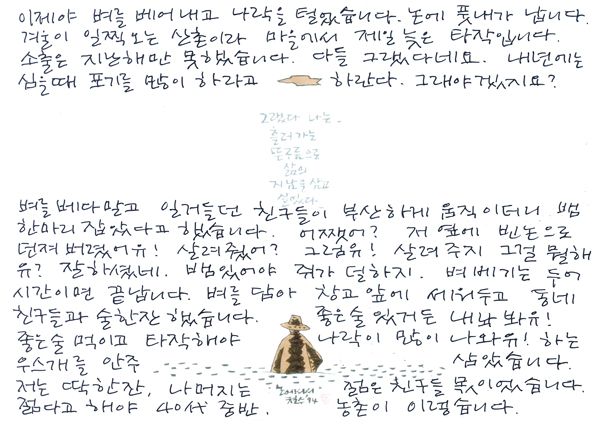 이제야 벼를 베어내고 나락을 털었습니다. 논에 풋내가 납니다.
겨울이 일찍 오는 산촌이라 마을에서 제일 늦은 타작입니다.
소출은 지난해만 못했습니다. 다들 그랬다네요. 내년에는
심을때 포기를 많이 하라고 하란다. 그래야겠지요?
그랬다 나는.
흘러가는
뜬구름으로
삶의
지남을 삼고
살았다.
벼를 베다말고 일거들던 친구들이 부산하게 움직이더니 뱀
한마리 잡았다고 했습니다. 어쨌어? 저 옆에 빈논으로
던져 버렸어유! 살려줬어? 그럼유! 살려주지 그걸 뭘해
유? 잘하셨네. 뱀있어야 쥐가 덜하지. 벼베기는 두어
시간이면 끝납니다. 벼를 담아 창고앞에 세워두고 동네
친구들과 술한잔 했습니다. 좋은술 있거든 내놔봐유!
좋은술 먹이고 타작해야 나락이 많이 나와유! 하는
우스개를 안주 삼았습니다.
저는 딱한잔, 나머지는 젊은 친구들 몫이었습니다.
젊다고 해야 40代 중반. 농촌이 이렇습니다.
논에서
철수 94